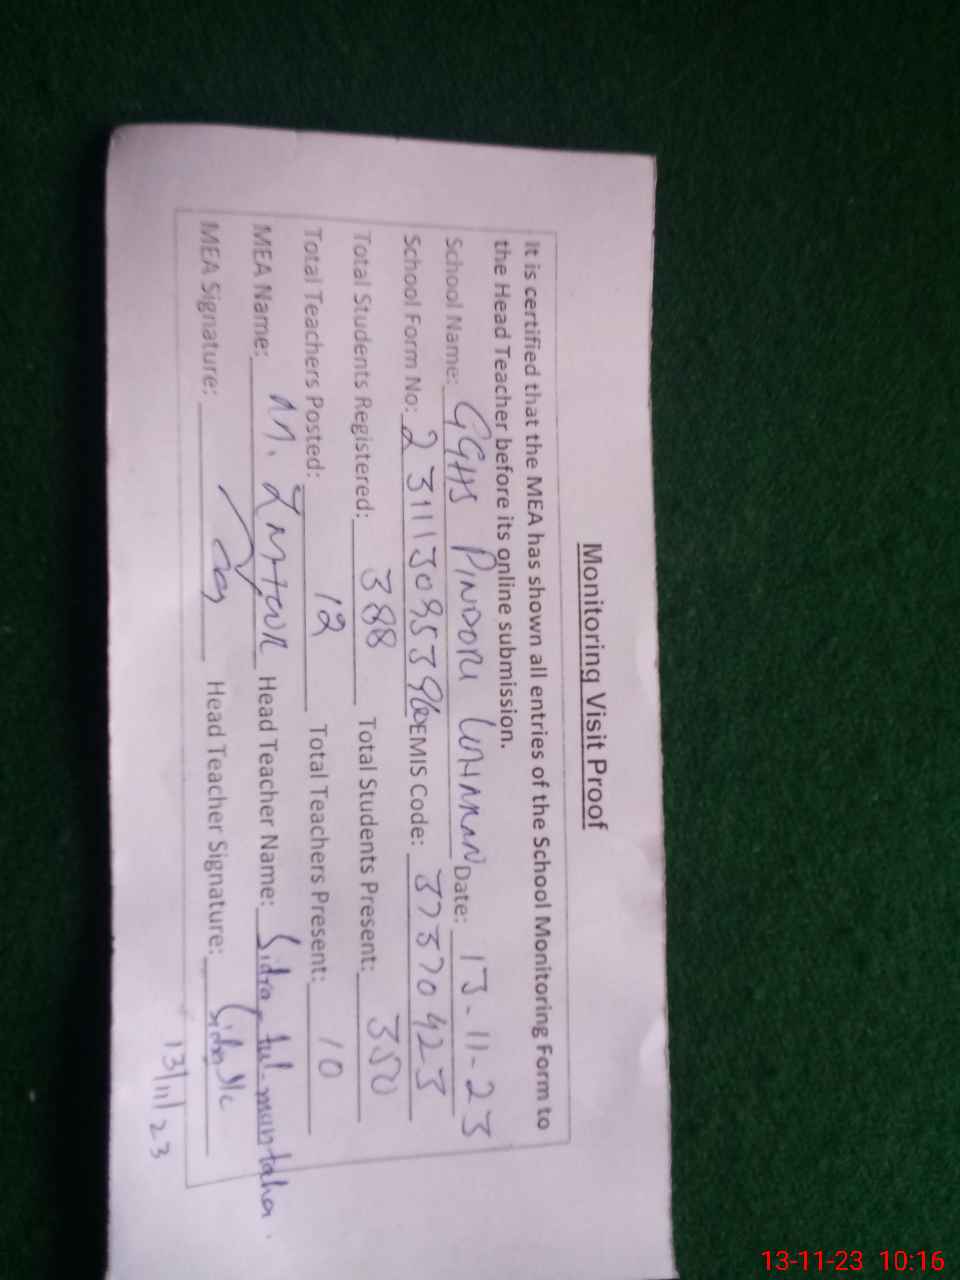 Monitoring Visit Proof
It is certified that the MEA has shown all entries of the School Monitoring Form to
the Head Teacher before its online submission.
School Name: GGHS PINDORI Date: 13-11-23
School Form No: EMIS Code: 37370423
Total Students Registered: 388 Total Students Present: 350
Total Teachers Posted: 12 Total Teachers Present: 10
MEA Name: M. Head Teacher Name: Sidra-tul-muntaha
MEA Signature: Head Teacher Signature:
13/11/23
13-11-23 10:16